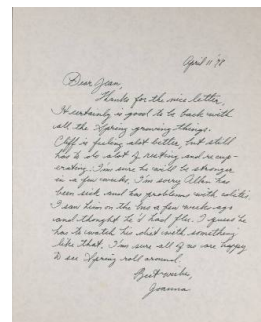 April 11 '78
Dear Jean,
Thanks for the nice letter.
It certainly is good to be back with
all the Spring growing things.
Cliff is feeling alot better, but still
has to do alot of resting and recup-
erating. I'm sure he will be stronger
in a few weeks. I'm sorry Allan has
been sick and has problems with colitis.
I saw him on the bus a few weeks ago
and thought he'd had flu. I guess he
has to watch his diet with something
like that. I'm sure all of us are happy
to see Spring roll around.
Best wishes,
Joanna